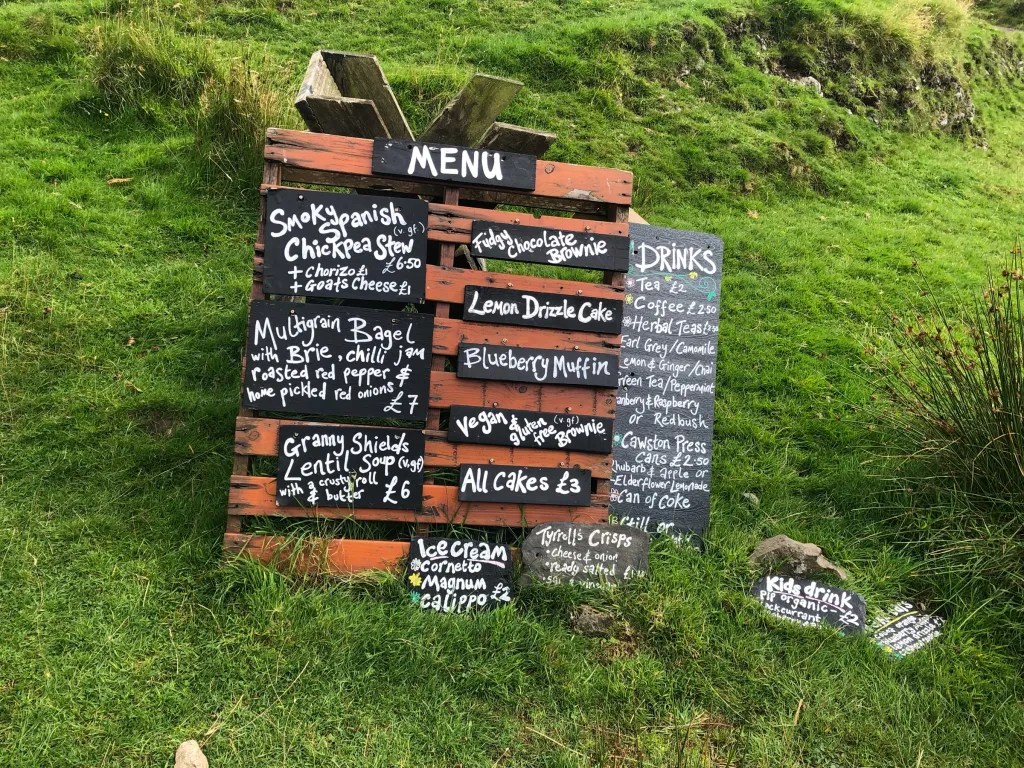 MENU
Smoky Spanish
Chickpea Stew (v. gf)
+ Chorizo £1 £6.50
+ Goats Cheese £1
Multigrain Bagel
with Brie, chilli jam
roasted red pepper &
home pickled red onions
£7
Granny Shields
Lentil Soup (v. gf)
with a crusty roll
& butter £6
Fudgy Chocolate
Brownie
Lemon Drizzle Cake
Blueberry Muffin
Vegan & (v. gf)
gluten free Brownie
All Cakes £3
Ice Cream
Cornetto
Magnum
Calippo £2
Tyrrells Crisps
• cheese & onion
• ready salted
DRINKS
Tea £2
Coffee £2.50
Herbal Teas
Earl Grey/Camomile
Lemon & Ginger/Chai
Green Tea/Peppermint
& Raspberry
or Redbush
Cawston Press
Cans £2.50
rhubarb & apple or
Elderflower Lemonade
Can of Coke
Still or
Kids drink
organic - £2